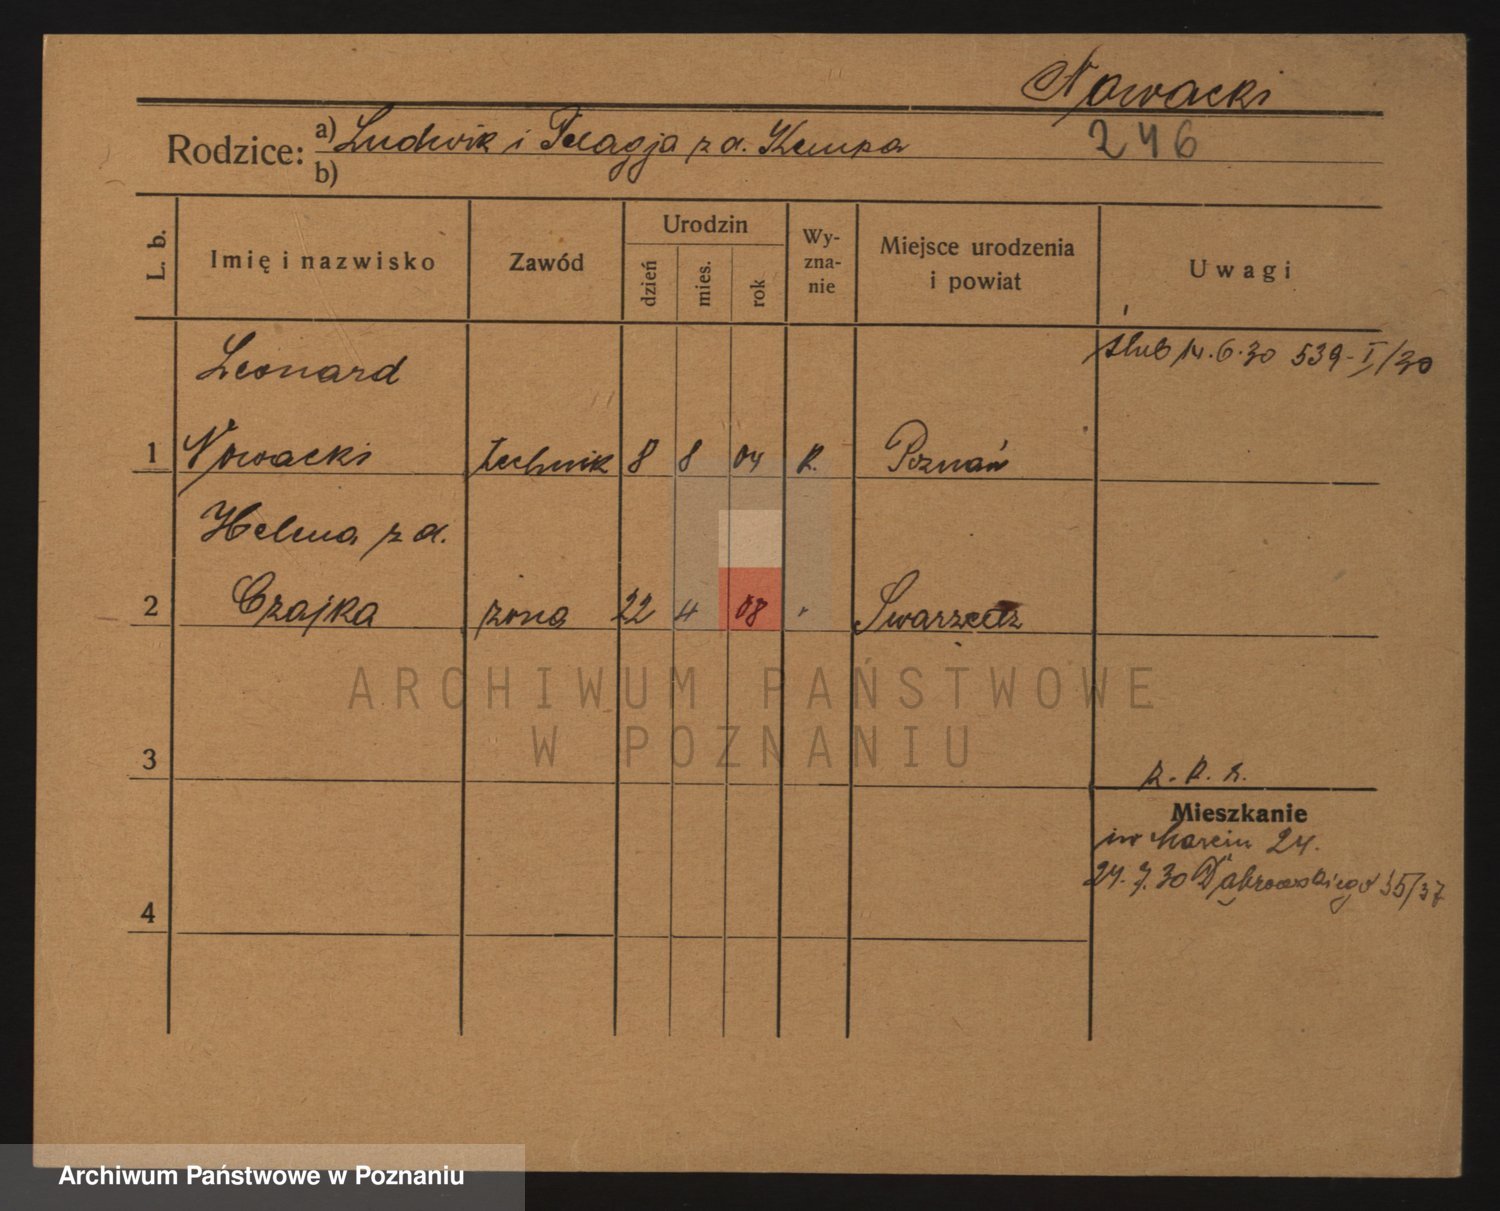 Nowacki
Rodzice: a) Ludwik i Pelagja z d. Kempa 246
b)
L. b. Imię i nazwisko Zawód Urodzin dzień mies. rok Wy-zna-nie Miejsce urodzenia i powiat Uwagi
Leonard ślub 14.6.30 539-I/30
1 Nowacki technik 8 8 04 k. Poznań
Helena z d.
2 Czajka żona 22 4 08 " Swarzędz
ARCHIWUM PAŃSTWOWE
W POZNANIU
3
Mieszkanie
św Marcin 24.
24.7.30 Dąbrowskiego 35/37
4
Archiwum Państwowe w Poznaniu